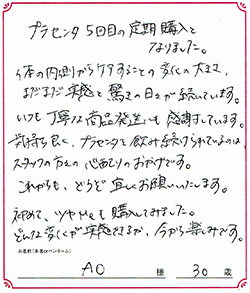 プラセンタ 5回目の定期購入と
なりました。
体の内側からケアすることの変化の大きさ、
まだまだ実感と驚きの日々が続いています。
いつも丁寧な商品発送にも感謝しています。
気持ち良く、プラセンタを飲み続けられているのは、
スタッフの方々の心あたりのおかげです。
これからも、どうぞ宜しくお願いいたします。
初めて、ツヤMeも購入してみました。
どんな変化が実感できるか、今から楽しみです。
お名前(本名orペンネーム)
AO 様 30 歳